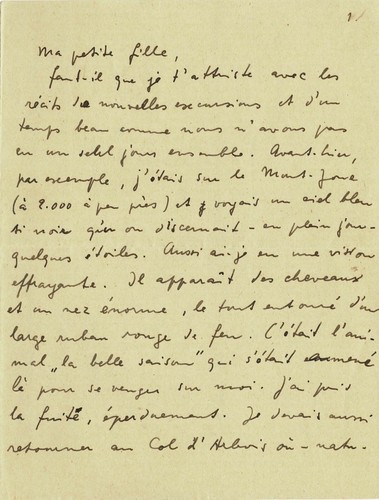 1/
Ma petite fille,
faut-il que je t'attriste avec les
récits de nouvelles excursions et d'un
temps beau comme nous n'avons pas
eu un seul jour ensemble. Avant-hier,
par exemple, j'étais sur le Mont-Joux
(à 2.000 à peu près) et y voyais un ciel bleu
si noir qu'on discernait - en plein jour -
quelques étoiles. Aussi ai-je eu une vision
effrayante. Il apparaît des cheveaux
et un nez énorme, le tout entouré d'un
large ruban rouge de feu. C'était l'ani-
mal „la belle saison" qui s'était amené
là pour se venger sur moi. J'ai pris
la fuite, éperdument. Je devais aussi
retourner au Col d'Arbois où - natu-